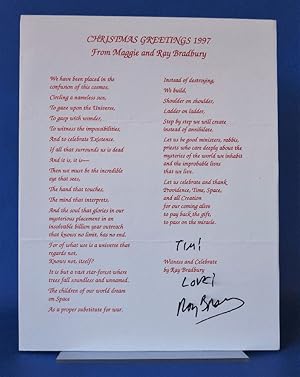 CHRISTMAS GREETINGS 1997
From Maggie and Ray Bradbury
We have been placed in the
confusion of this cosmos,
Circling a nameless sun,
To gaze upon the Universe,
To gasp with wonder,
To witness the impossibilities,
And to celebrate Existence.
If all that surrounds us is dead
And it is, it is—
Then we must be the incredible
eye that sees,
The hand that touches,
The mind that interprets,
And the soul that glories in our
mysterious placement in an
insolvable billion year outreach
that knows no limit, has no end.
For of what use is a universe that
regards not,
Knows not, itself?
It is but a vast star-forest where
trees fall soundless and unnamed.
The children of our world dream
on Space
As a proper substitute for war.
Instead of destroying,
We build,
Shoulder on shoulder,
Ladder on ladder,
Step by step we will create
instead of annihilate.
Let us be good ministers, rabbis,
priests who care deeply about the
mysteries of the world we inhabit
and the improbable lives
that we live.
Let us celebrate and thank
Providence, Time, Space,
and all Creation
for our coming alive
to pay back the gift,
to pass on the miracle.
TIM!
Witness and Celebrate
by Ray Bradbury
LOVE!
Ray Bradbury